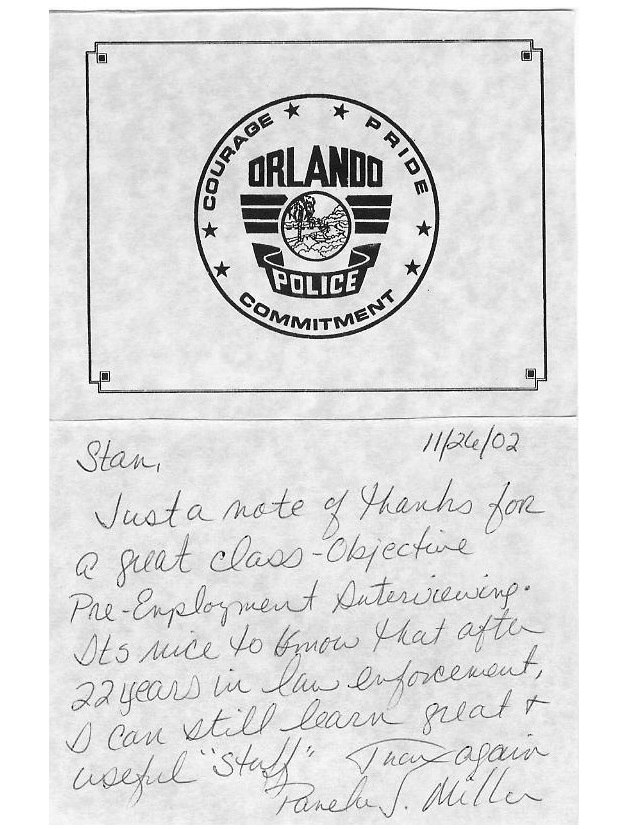 COURAGE ★ ★ PRIDE
ORLANDO
POLICE
COMMITMENT
11/26/02
Stan,
Just a note of thanks for
a great class - Objective
Pre-Employment Interviewing.
Its nice to know that after
22 years in law enforcement,
I can still learn great &
useful "Stuff" Thanx again
Pamela J. Miller